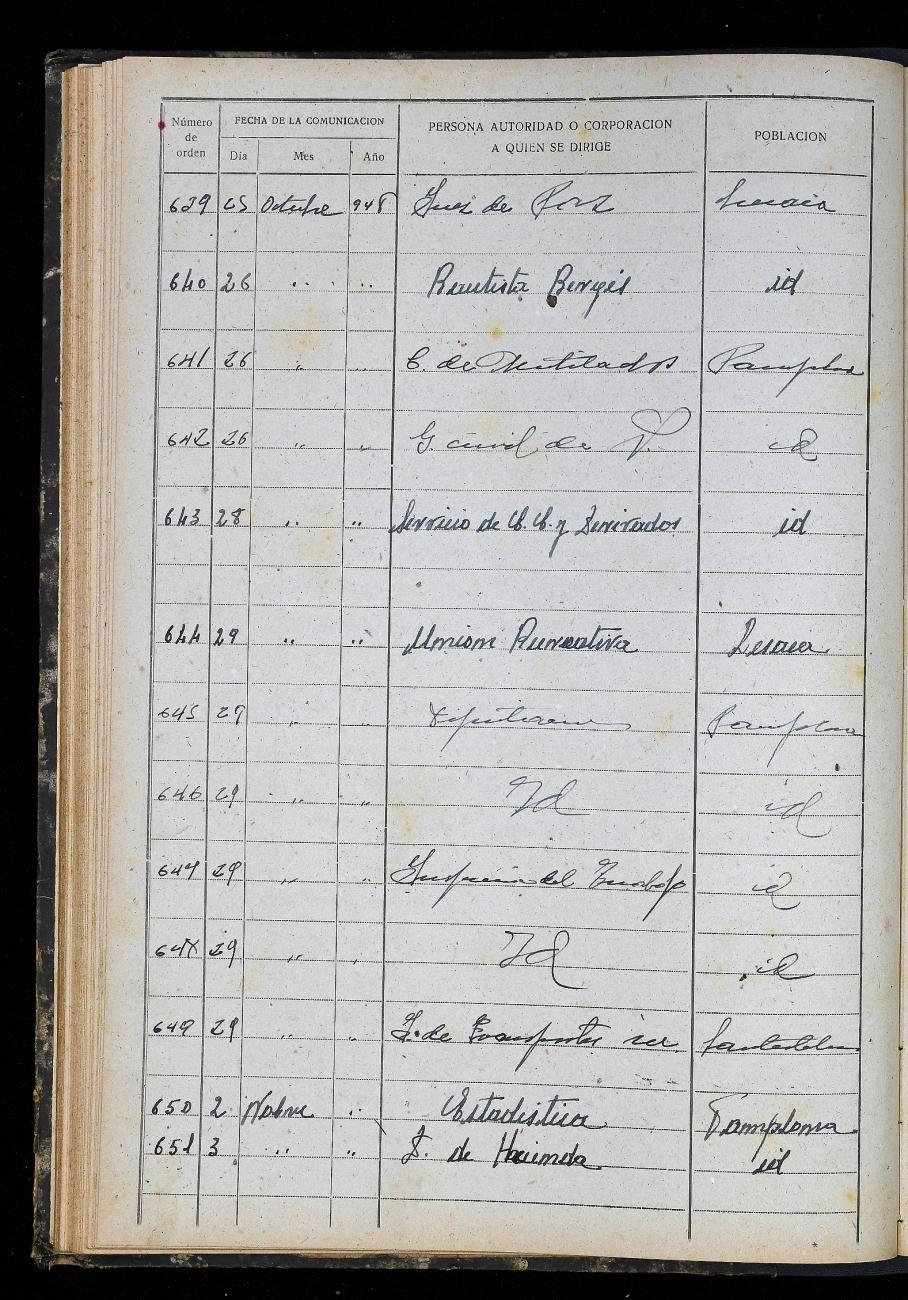 Número de orden FECHA DE LA COMUNICACION PERSONA AUTORIDAD O CORPORACION A QUIEN SE DIRIGE POBLACION
Día Mes Año
639 25 Octubre 948 Juez de Paz
640 26 " " Bautista Bergés id
641 26 " " C. de Mutilados Pamplona
642 26 " " G. civil de id
643 28 " " Servicio de C. C. y Derivados id
644 29 " " Union Recreativa
645 29 " " Diputacion Pamplona
646 29 " " Id id
647 29 " " del Trabajo id
648 29 " " Id id
649 29 " " J. de Transportes
650 2 Nobre " Estadistica Pamplona
651 3 " " D. de Hacienda id